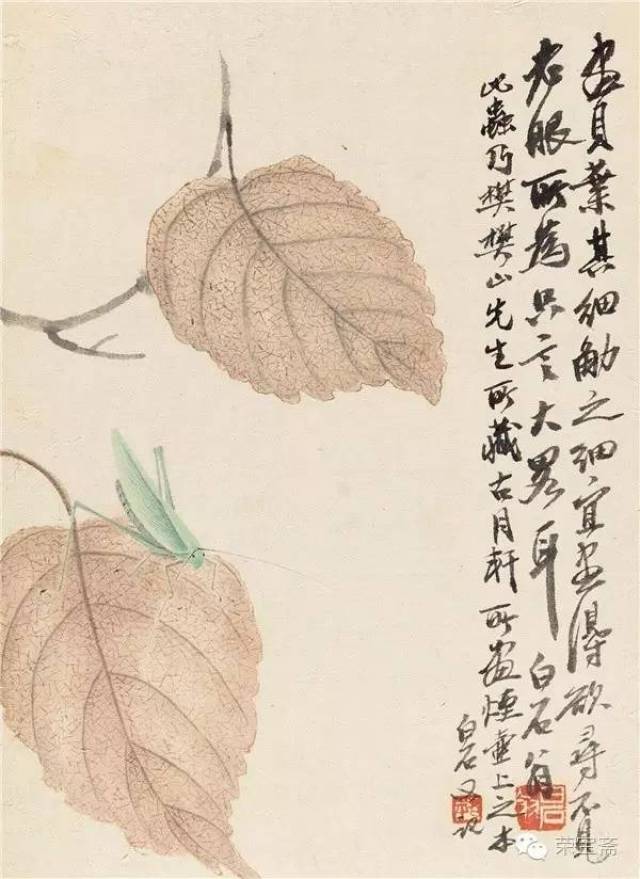 畫貝葉其細觔之細宜畫得欲尋不見
老眼所為只言大畧耳 白石翁
此蟲乃樊樊山先生所藏古月軒所畫煙壺上之本
白石又記
白石翁
荣宝斋